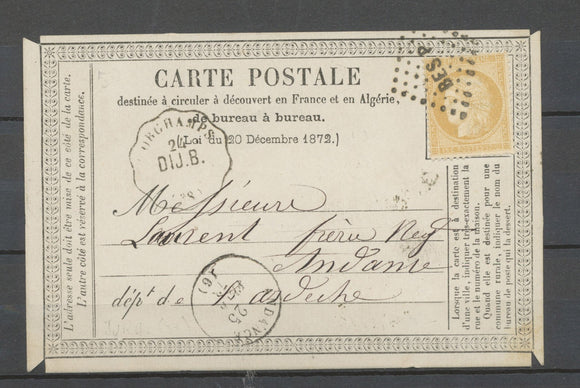 CARTE POSTALE
destinée à circuler à découvert en France et en Algérie,
de bureau à bureau.
(Loi du 20 Décembre 1872.)
BES.P
ORCHAMPS
24
DIJ.B.
Messieurs
Laurent frère
dépt. de l'Ardèche
25
L'adresse seule doit être mise de ce côté de la carte.
L'autre côté est réservé à la correspondance.
Lorsque la carte est à destination
d'une ville, indiquer très-exactement la
rue et le numéro de la maison.
Quand elle est destinée pour une
commune rurale, indiquer le nom du
bureau de poste qui la dessert.